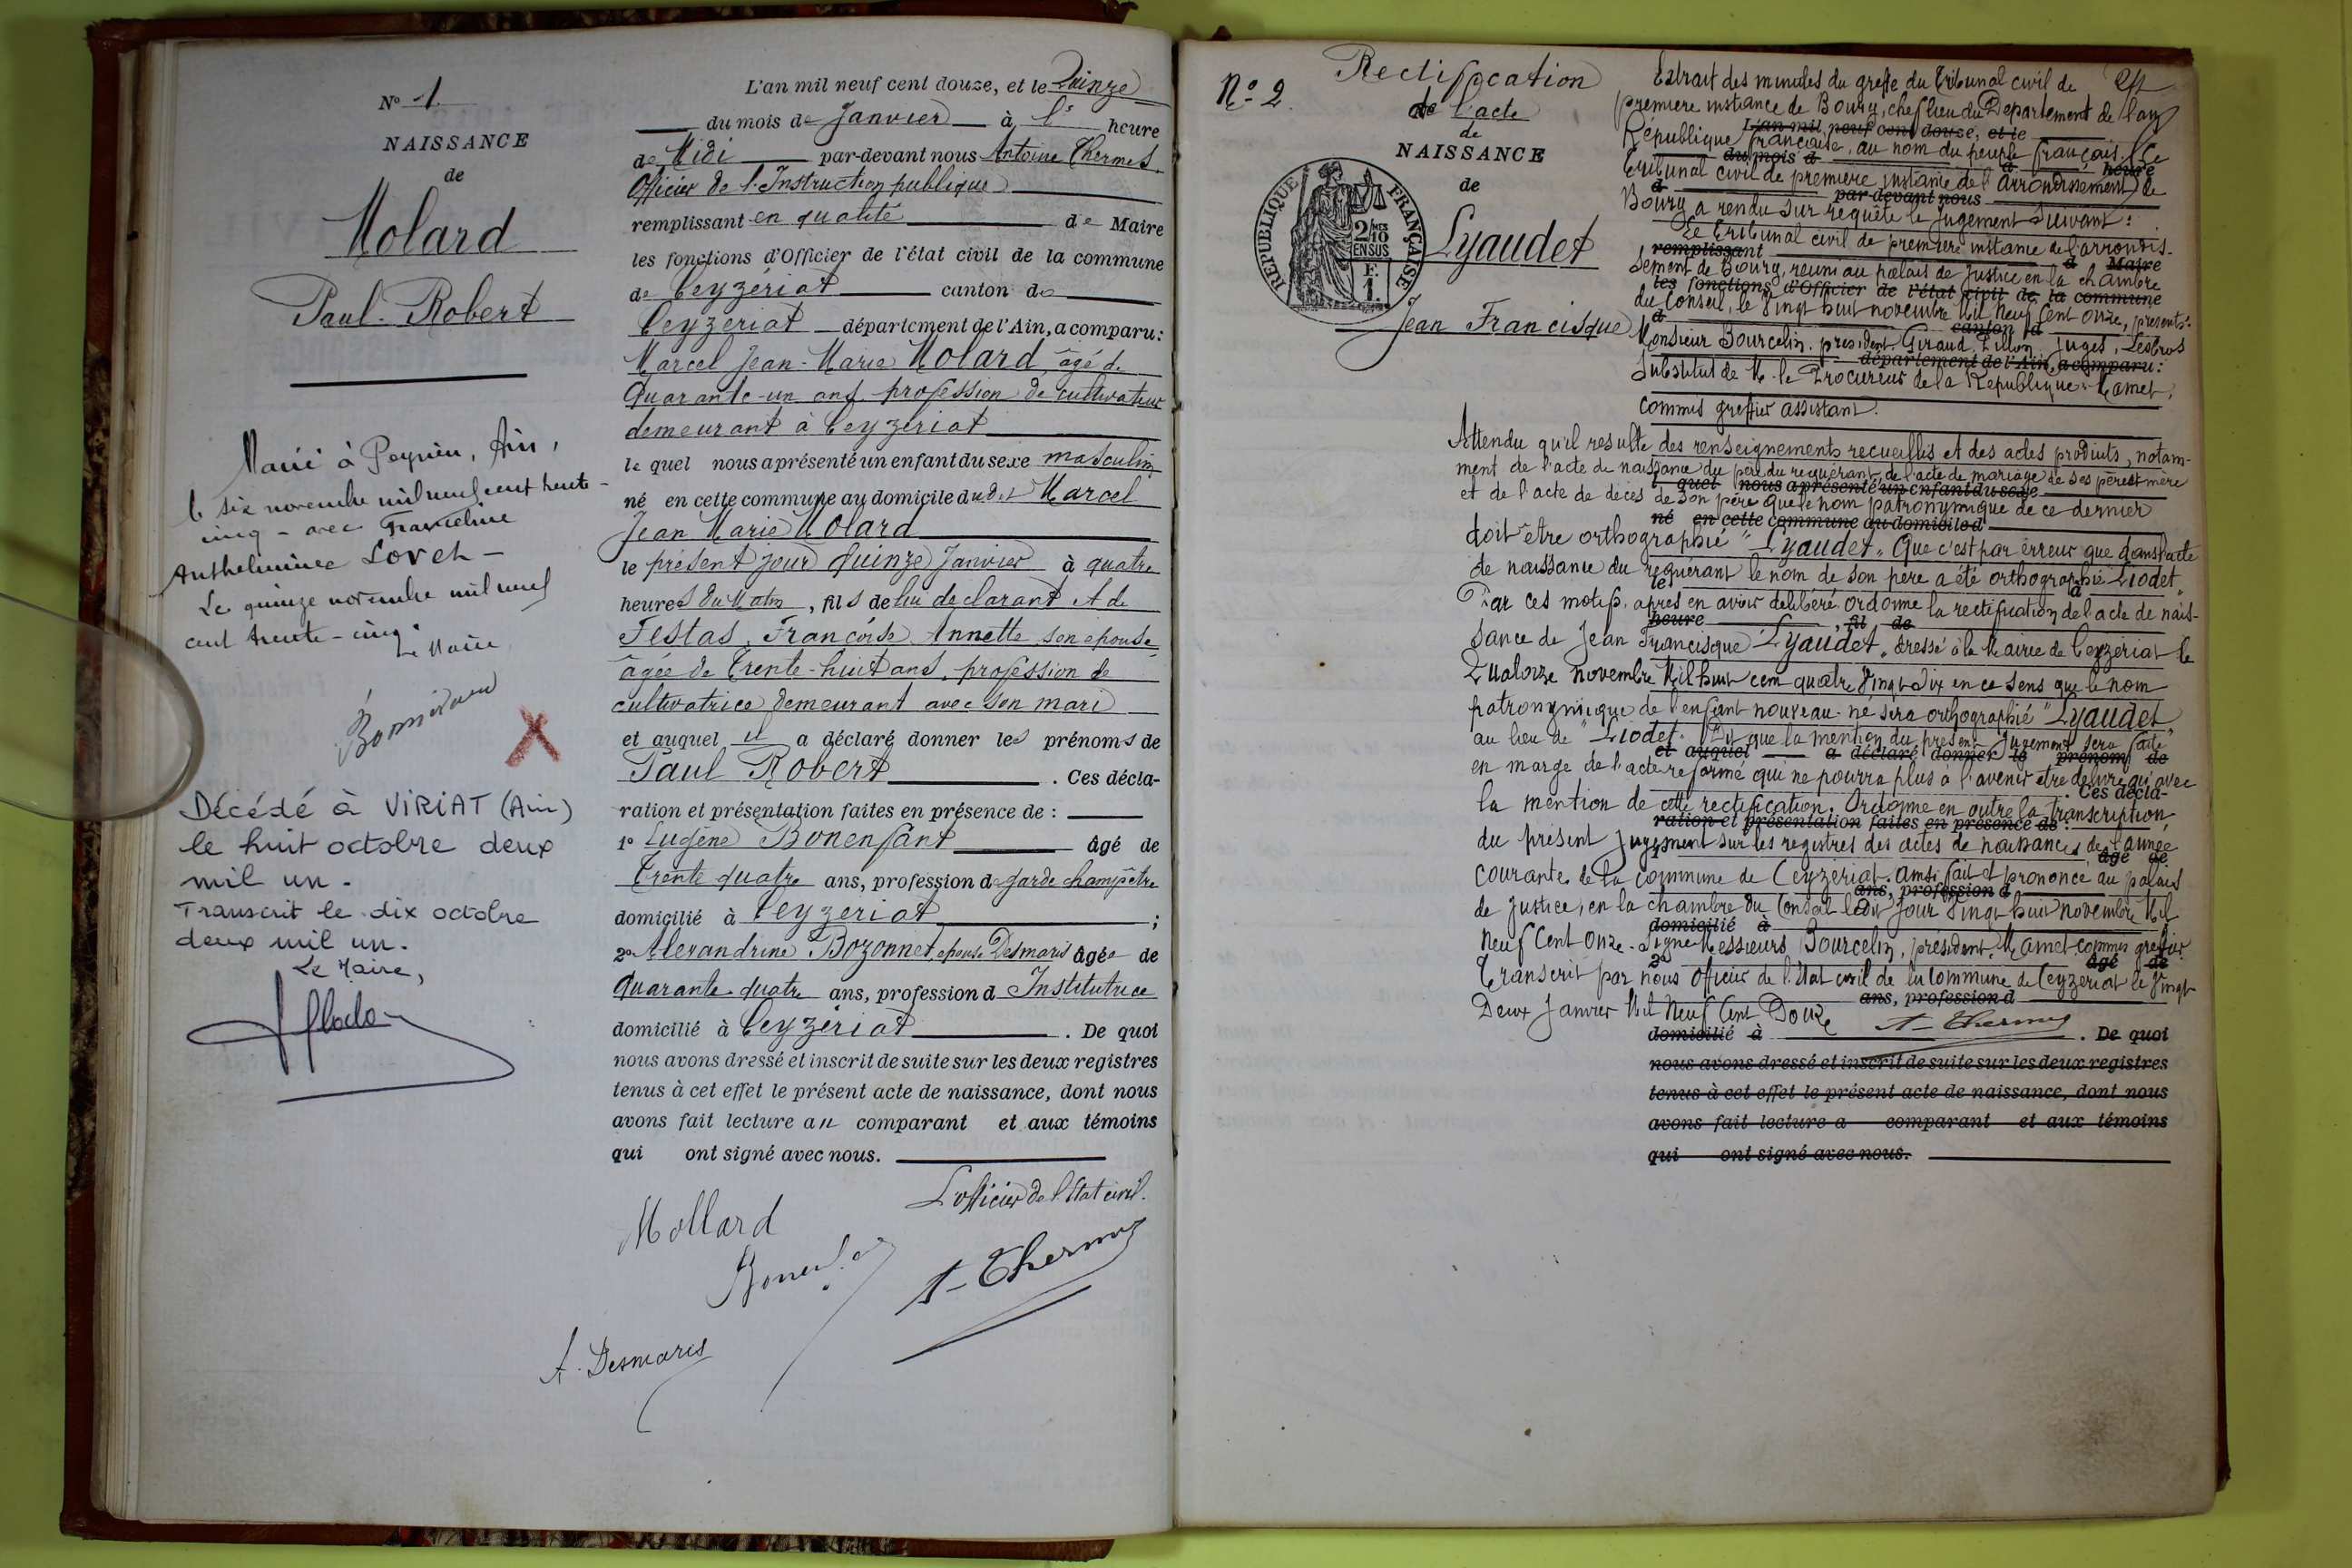 N° 1.
NAISSANCE
de
Molard
Paul-Robert
Marié à Peyrieu, Ain,
le six novembre mil neuf cent trente-
cinq - avec Franceline
Anthelminee Lovet -
Le quinze novembre mil neuf
cent trente-cinq.
Le Maire,
Décédé à VIRIAT (Ain)
le huit octobre deux
mil un.
Transcrit le dix octobre
deux mil un.
Le Maire,
L'an mil neuf cent douze, et le Quinze
du mois de Janvier à l' heure
de Midi par-devant nous Antoine Thermes
Officier de l'Instruction publique
remplissant en qualité de Maire
les fonctions d'Officier de l'état civil de la commune
de Ceyzériat canton de
Ceyzériat département de l'Ain, a comparu:
Marcel Jean-Marie Molard, âgé de
Quarante-un ans profession de cultivateur
demeurant à Ceyzériat
lequel nous a présenté un enfant du sexe masculin
né en cette commune au domicile du dit Marcel
Jean Marie Molard
le présent jour Quinze Janvier à quatre
heures du Matin, fils de lui déclarant et de
Festas, Françoise Annette son épouse
âgée de Trente-huit ans, profession de
cultivatrice demeurant avec son mari
et auquel il a déclaré donner les prénoms de
Paul Robert. Ces décla-
ration et présentation faites en présence de :
1° Eugène Bonenfant âgé de
Trente quatre ans, profession de garde champêtre
domicilié à Ceyzériat ;
2° Alexandrine Bozonnet, épouse Desmaris âgée de
Quarante quatre ans, profession d Institutrice
domicilié à Ceyzériat. De quoi
nous avons dressé et inscrit de suite sur les deux registres
tenus à cet effet le présent acte de naissance, dont nous
avons fait lecture au comparant et aux témoins
qui ont signé avec nous.
L'officier de l'Etat civil.
Mollard
A. Thermes
A. Desmaris
N° 2.
Rectification
de l'acte
de
NAISSANCE
de
Lyaudet
Jean Francisque
RÉPUBLIQUE FRANÇAISE
2/10 EN SUS
F.
1.
Extrait des minutes du greffe du Tribunal civil de
première instance de Bourg, chef lieu du Département de l'ain
L'an mil neuf cent douze, et le
République française, au nom du peuple français. Le
du mois d à heure
Tribunal civil de première instance de l'Arrondissement de
d par-devant nous
Bourg a rendu sur requête le Jugement Suivant :
Le Tribunal civil de première instance de l'arrondis-
remplissant d Maire
sement de Bourg, réuni au palais de Justice en la chambre
les fonctions d'Officier de l'état civil de la commune
du Conseil, le Vingt huit novembre Mil Neuf Cent Onze, présents:
d canton d
Monsieur Bourcelin, président, Giraud, Juges, Lesbros
département de l'Ain, a comparu:
Substitut de M. le Procureur de la République, Mamet,
commis greffier assistant.
Attendu qu'il résulte des renseignements recueillis et des actes produits, notam-
ment de l'acte de naissance du père du requérant, de l'acte de mariage de ses père et mère
l quel nous a présenté un enfant du sexe
et de l'acte de décès de son père que le nom patronymique de ce dernier
né en cette commune au domicile d
doit être orthographié "Lyaudet". Que c'est par erreur que dans l'acte
de naissance du requérant le nom de son père a été orthographié "Liodet"
le à
Par ces motifs, après en avoir délibéré, ordonne la rectification de l'acte de nais-
heure , fil de
sance de Jean Francisque Lyaudet, dressé à la Mairie de Ceyzériat le
Quatorze novembre Mil huit cent quatre Vingt Dix en ce sens que le nom
patronymique de l'enfant nouveau-né sera orthographié "Lyaudet"
au lieu de "Liodet". Dit que la mention du présent Jugement sera faite
et auquel a déclaré donner le prénom de
en marge de l'acte réformé qui ne pourra plus à l'avenir être délivré qu'avec
. Ces décla-
la mention de cette rectification. Ordonne en outre la transcription
ration et présentation faites en présence de :
du présent Jugement sur les registres des actes de naissances de l'année
1° âgé de
courante de la commune de Ceyzériat. Ainsi fait et prononcé au palais
ans, profession d
de justice, en la chambre du Conseil ledit jour Vingt huit novembre Mil
domicilié à
Neuf Cent Onze. Signé Messieurs Bourcelin, président, Mamet commis greffier
2° âgé de
Transcrit par nous Officier de l'Etat civil de la Commune de Ceyzériat le Vingt
ans, profession d
Deux Janvier Mil Neuf Cent Douze A. Thermes
domicilié à . De quoi
nous avons dressé et inscrit de suite sur les deux registres
tenus à cet effet le présent acte de naissance, dont nous
avons fait lecture a comparant et aux témoins
qui ont signé avec nous.